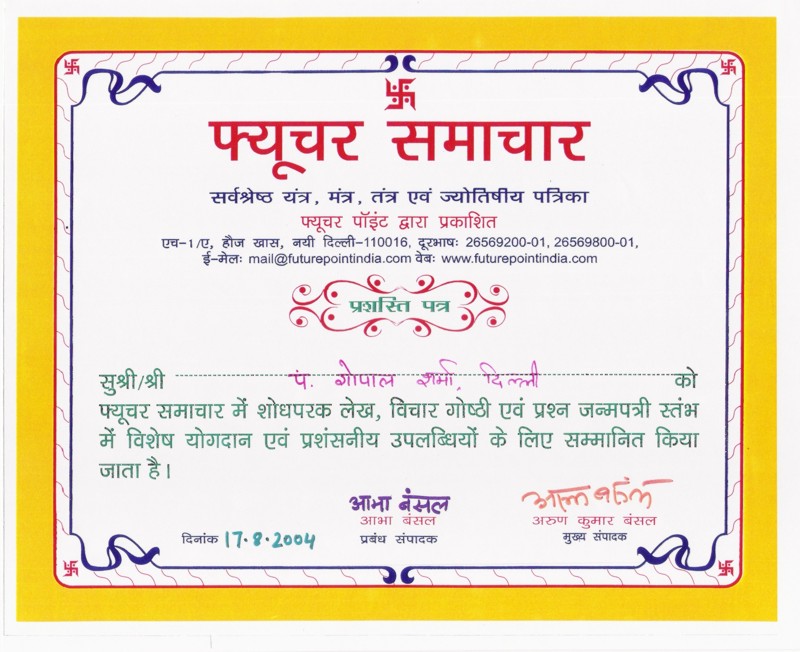 फ्यूचर समाचार
सर्वश्रेष्ठ यंत्र, मंत्र, तंत्र एवं ज्योतिषीय पत्रिका
फ्यूचर पॉइंट द्वारा प्रकाशित
एच-1/ए, हौज खास, नयी दिल्ली-110016, दूरभाषः 26569200-01, 26569800-01,
ई-मेलः mail@futurepointindia.com वेबः www.futurepointindia.com
प्रशस्ति पत्र
सुश्री/श्री पं. गोपाल शर्मा, दिल्ली को
फ्यूचर समाचार में शोधपरक लेख, विचार गोष्ठी एवं प्रश्न जन्मपत्री स्तंभ
में विशेष योगदान एवं प्रशंसनीय उपलब्धियों के लिए सम्मानित किया
जाता है।
आभा बंसल
आभा बंसल अरुण कुमार बंसल
दिनांक 17.8.2004 प्रबंध संपादक मुख्य संपादक